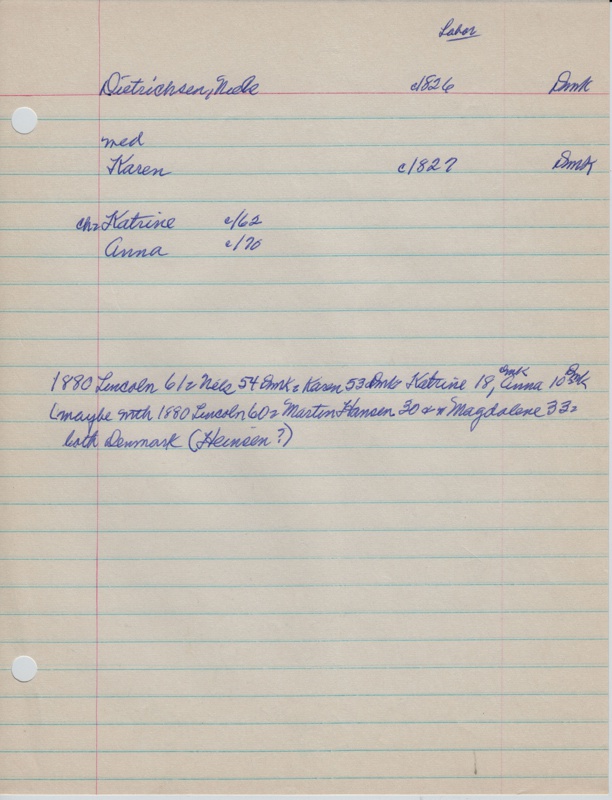 Labor
Dietrichsen, Niels c1826 Dmk
med
Karen c1827 Dmk
ch= Katrine c/62
Anna c/70
1880 Lincoln 61= Niels 54 Dmk= Karen 53 Dmk= Katrine 18, Dmk Anna 10 Dmk
(maybe with 1880 Lincoln 60= Martin Hansen 30 Magdalene 33=
both Denmark (Heinsen?)